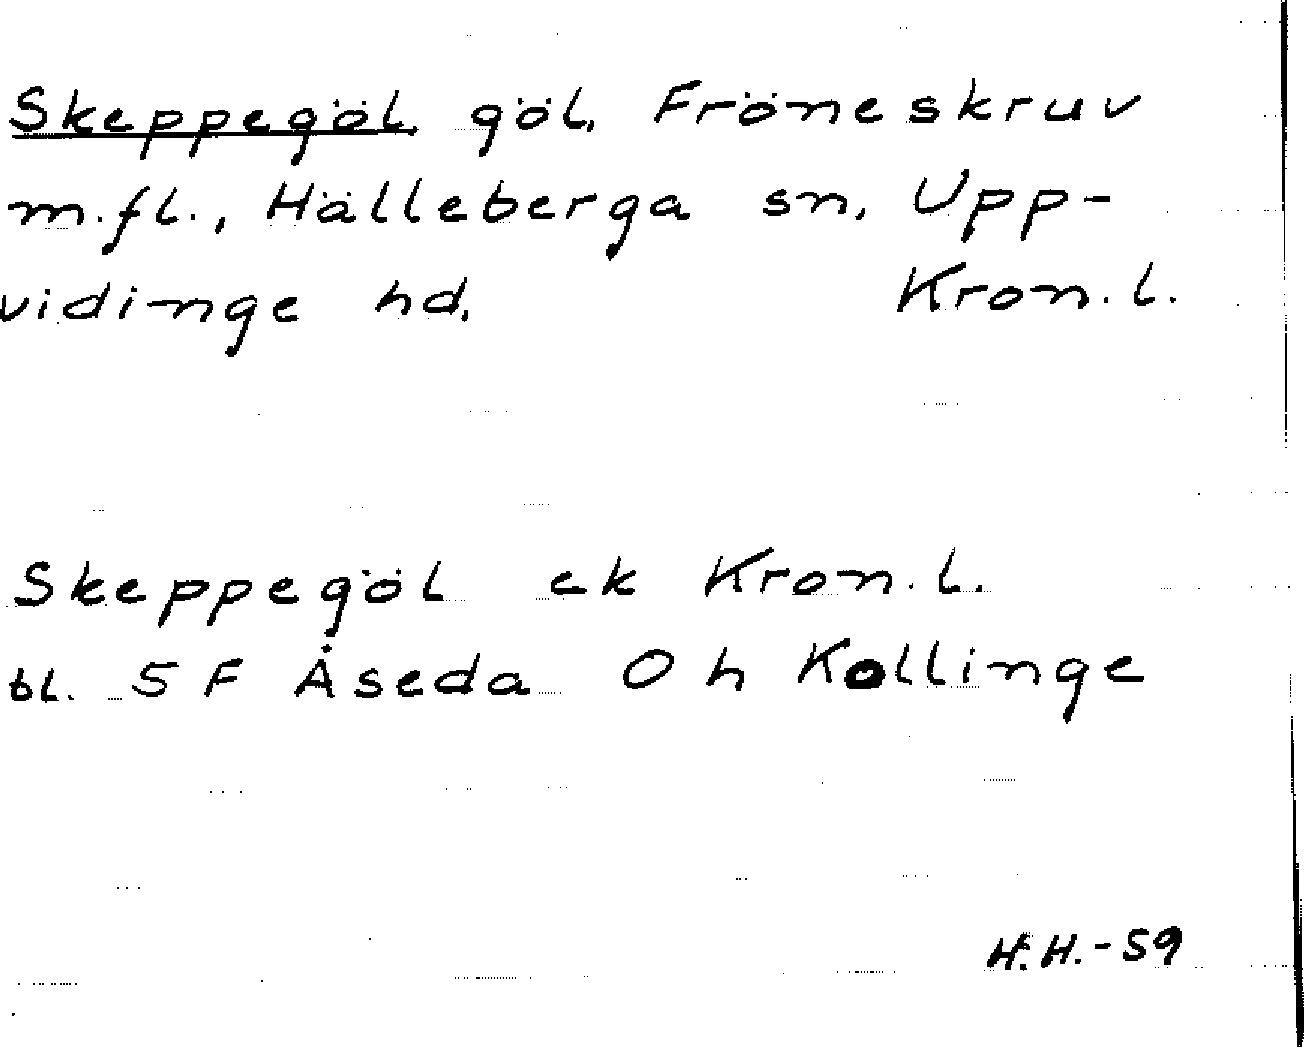 Skeppegöl, göl, Fröneskruv
m.fl., Hälleberga sn, Upp-
vidinge hd, Kron.l.
Skeppegöl ek Kron.l.
bl. 5F Åseda O h Kollinge
H.H.-59